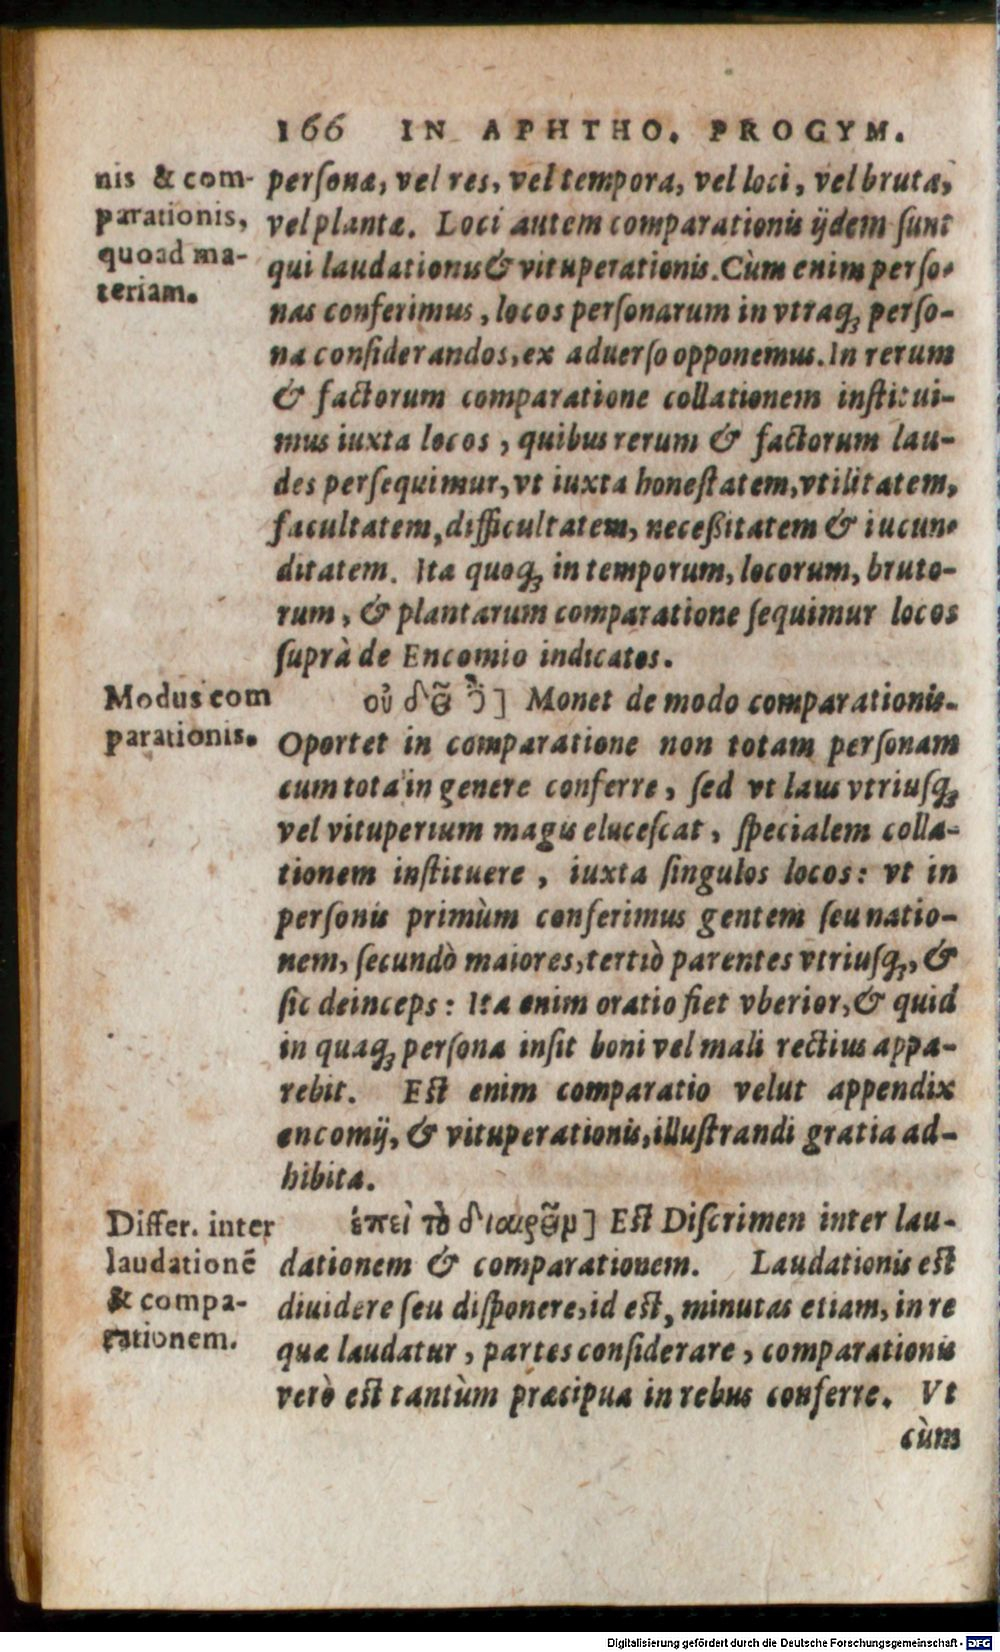 166 IN APHTHO. PROGYM.
nis & com-
parationis,
quoad ma-
teriam.
personæ, vel res, vel tempora, vel loci, vel bruta,
vel plantæ. Loci autem comparationis ijdem sunt
qui laudationis & vituperationis. Cùm enim perso-
nas conferimus, locos personarum in vtraq; perso-
na considerandos, ex aduerso opponemus. In rerum
& factorum comparatione collationem institui-
mus iuxta locos, quibus rerum & factorum lau-
des persequimur, vt iuxta honestatem, vtilitatem,
facultatem, difficultatem, necessitatem & iucun-
ditatem. Ita quoq; in temporum, locorum, bruto-
rum, & plantarum comparatione sequimur locos
suprà de Encomio indicatos.
Modus com
parationis.
οὐ δεῖ ] Monet de modo comparationis.
Oportet in comparatione non totam personam
cum tota in genere conferre, sed vt laus vtriusq;
vel vituperium magis elucescat, specialem colla-
tionem instituere, iuxta singulos locos: vt in
personis primùm conferimus gentem seu natio-
nem, secundò maiores, tertiò parentes vtriusq;, &
sic deinceps: Ita enim oratio fiet vberior, & quid
in quaq; persona insit boni vel mali rectius appa-
rebit. Est enim comparatio velut appendix
encomij, & vituperationis, illustrandi gratia ad-
hibita.
Differ. inter
laudationē
& compa-
rationem.
ἐπεὶ τὸ διαιρεῖν] Est Discrimen inter lau-
dationem & comparationem. Laudationis est
diuidere seu disponere, id est, minutas etiam, in re
quæ laudatur, partes considerare, comparationis
verò est tantùm præcipua in rebus conferre. Vt
cùm
Digitalisierung gefördert durch die Deutsche Forschungsgemeinschaft - DFG